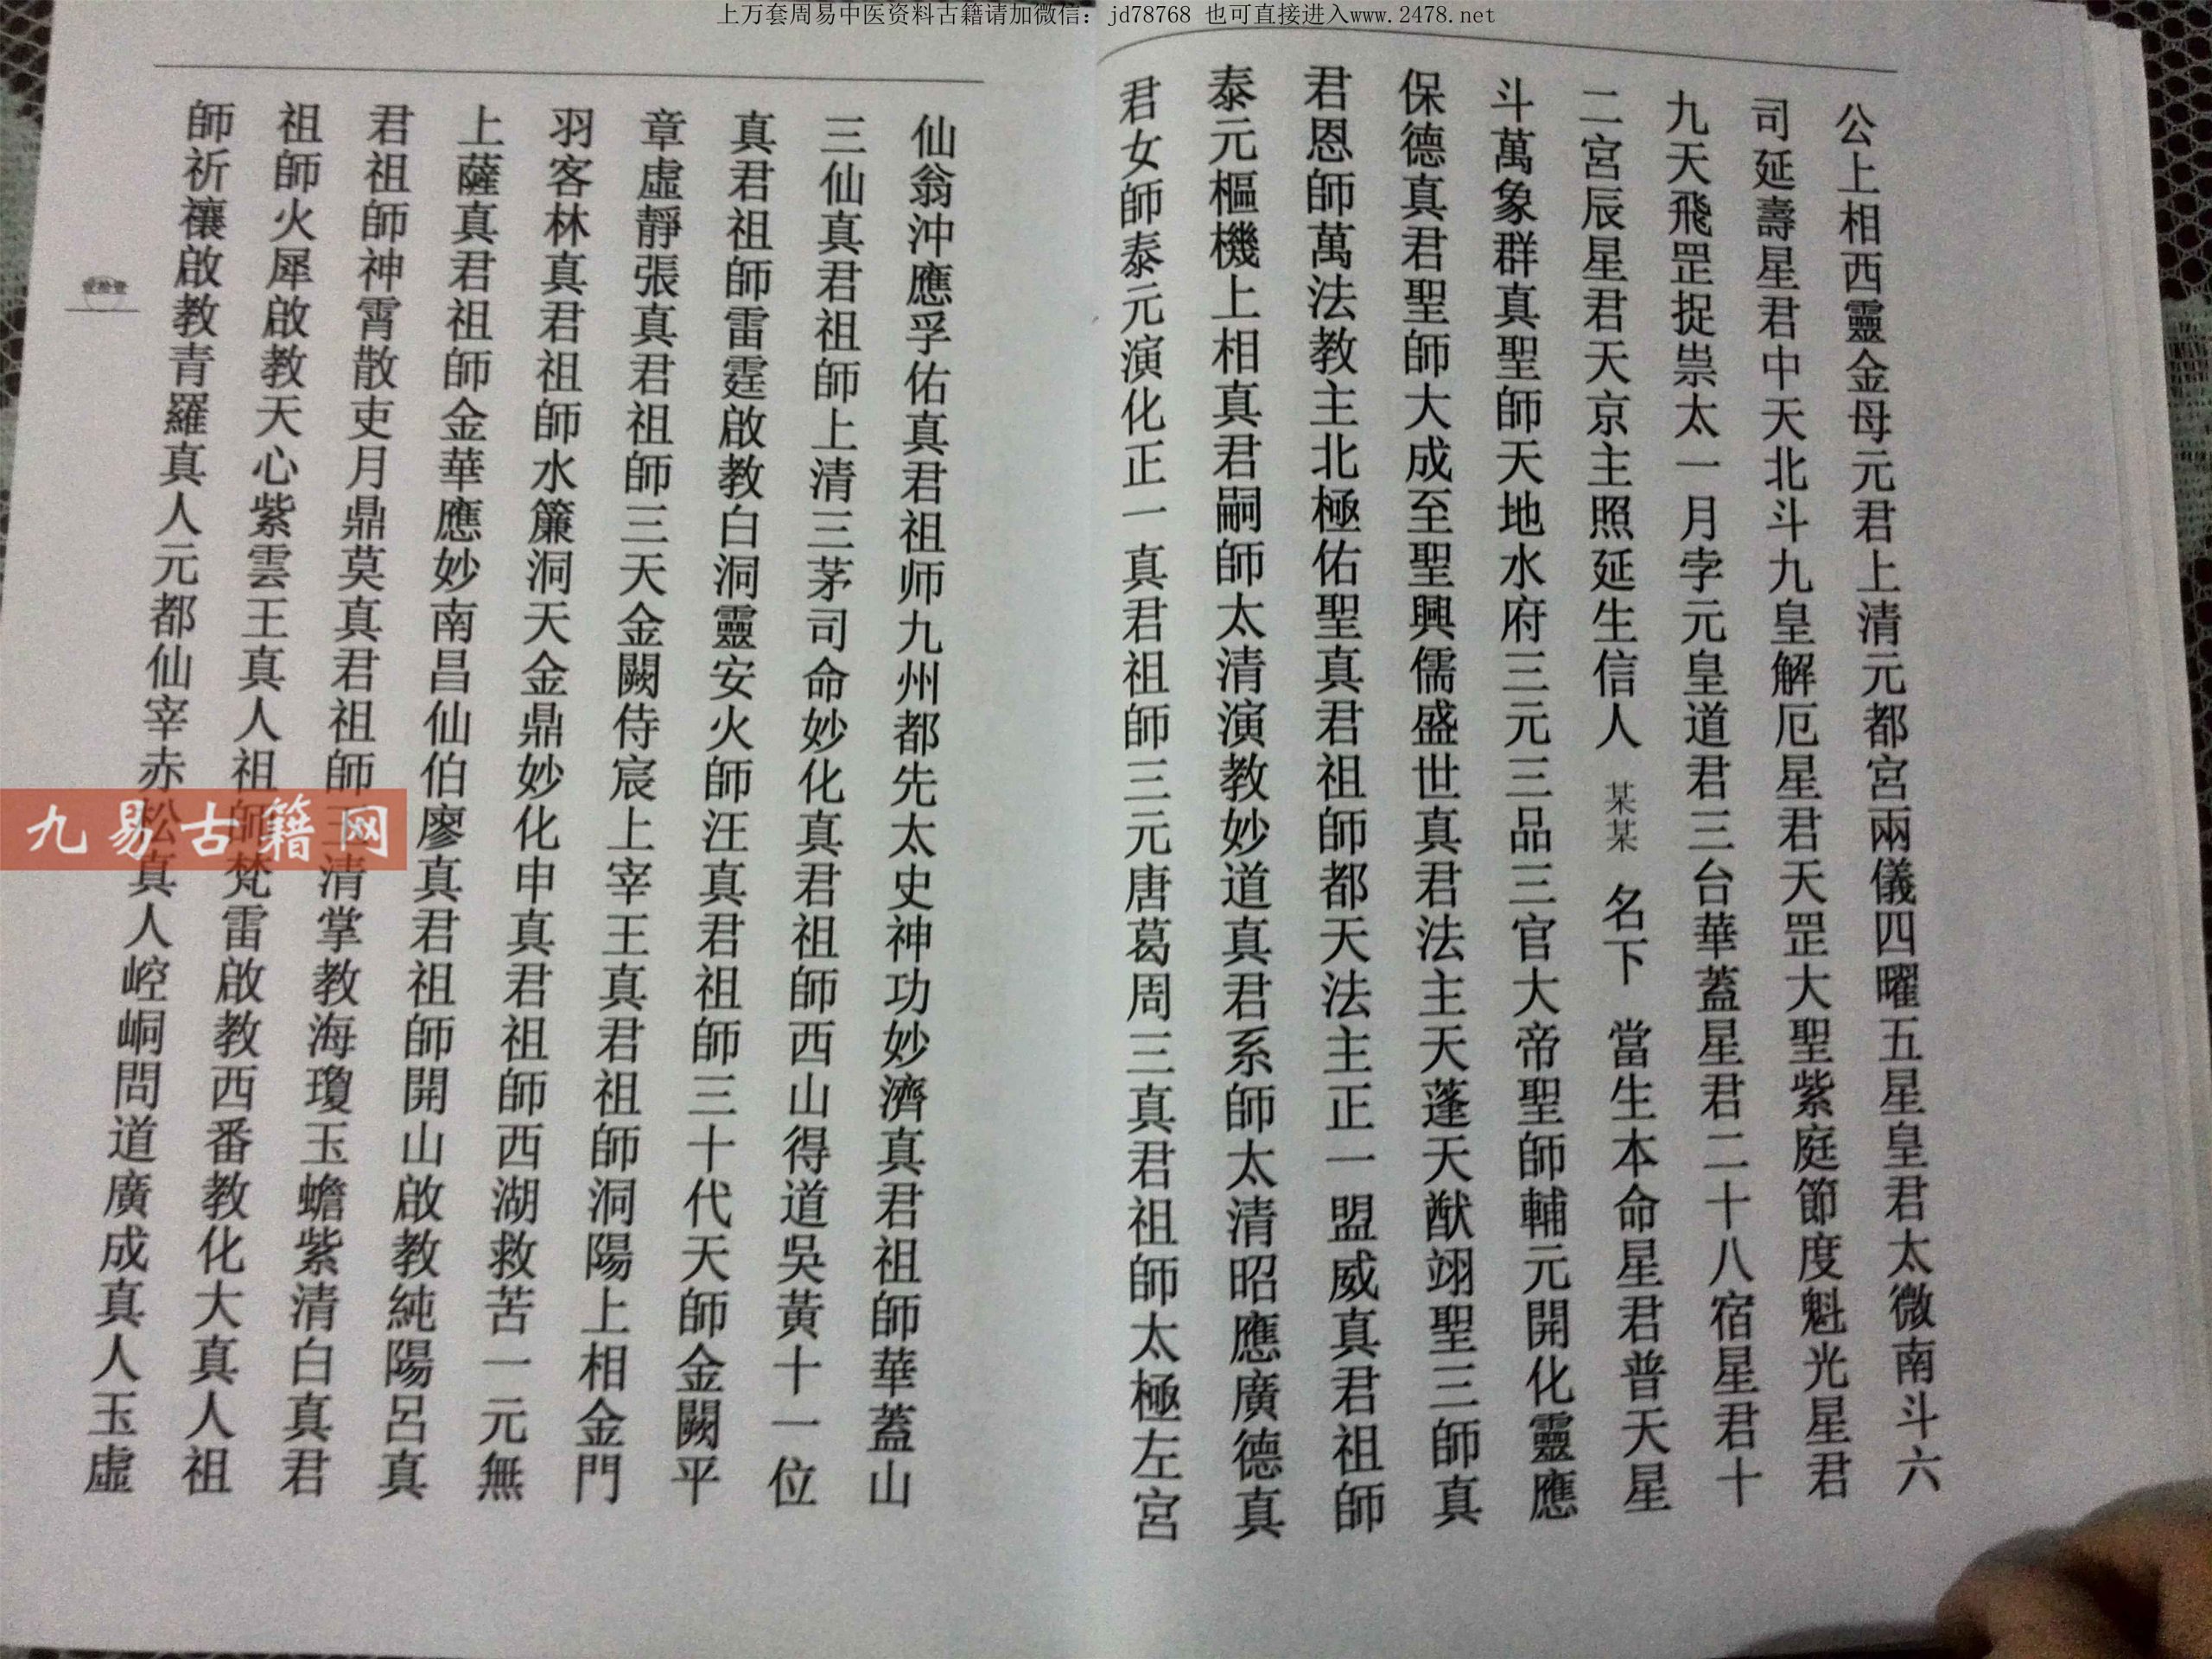 上万套周易中医资料古籍请加微信：jd78768 也可直接进入www.2478.net
公上相西靈金母元君上清元都宮兩儀四曜五星皇君太微南斗六
司延壽星君中天北斗九皇解厄星君天罡大聖紫庭節度魁光星君
九天飛罡捉祟太一月孛元皇道君三台華蓋星君二十八宿星君十
二宮辰星君天京主照延生信人 某某 名下 當生本命星君普天星
斗萬象群真聖師天地水府三元三品三官大帝聖師輔元開化靈應
保德真君聖師大成至聖興儒盛世真君法主天蓬天猷翊聖三師真
君恩師萬法教主北極佑聖真君祖師都天法主正一盟威真君祖師
泰元樞機上相真君嗣師太清演教妙道真君系師太清昭應廣德真
君女師泰元演化正一真君祖師三元唐葛周三真君祖師太極左宮
仙翁沖應孚佑真君祖师九州都先太史神功妙濟真君祖師華蓋山
三仙真君祖師上清三茅司命妙化真君祖師西山得道吳黃十一位
真君祖師雷霆啟教白洞靈安火師汪真君祖師三十代天師金闕平
章虛靜張真君祖師三天金闕侍宸上宰王真君祖師洞陽上相金門
羽客林真君祖師水簾洞天金鼎妙化申真君祖師西湖救苦一元無
上薩真君祖師金華應妙南昌仙伯廖真君祖師開山啟教純陽呂真
君祖師神霄散吏月鼎莫真君祖師玉清掌教海瓊玉蟾紫清白真君
祖師火犀啟教天心紫雲王真人祖師梵雷啟教西番教化大真人祖
師祈禳啟教青羅真人元都仙宰赤松真人崆峒問道廣成真人玉虛
九易古籍网